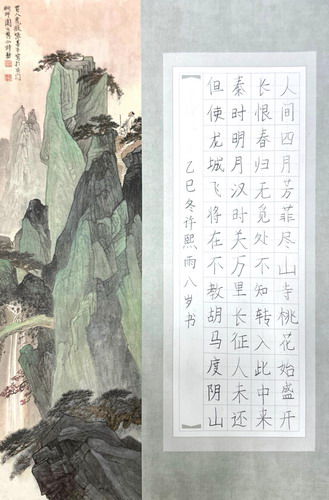 人间四月芳菲尽山寺桃花始盛开
长恨春归无觅处不知转入此中来
秦时明月汉时关万里长征人未还
但使龙城飞将在不教胡马度阴山
乙巳冬许熙雨八岁书